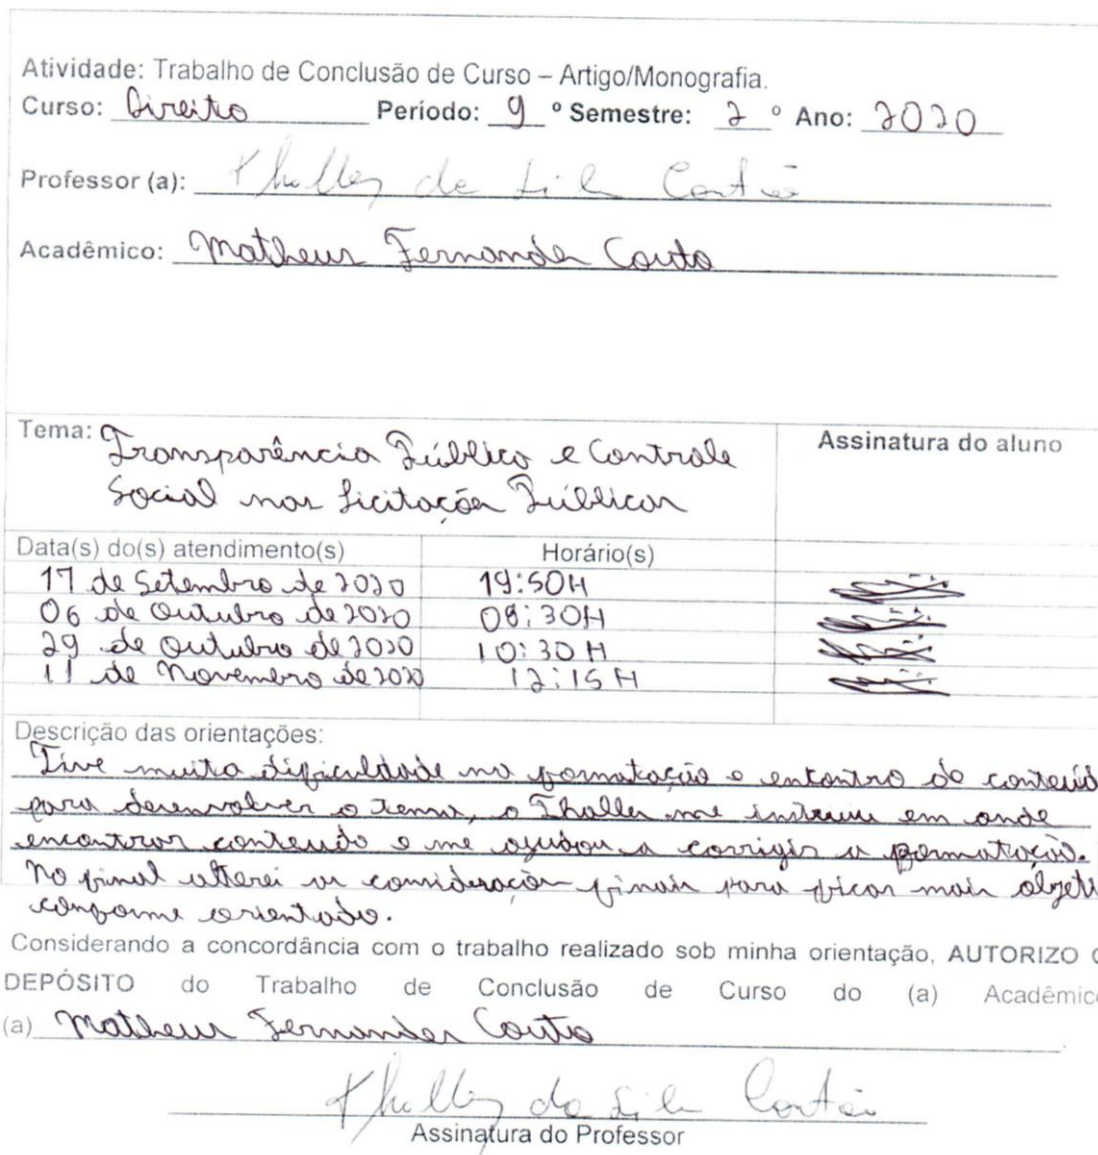 Atividade: Trabalho de Conclusão de Curso – Artigo/Monografia.
Curso: Direito Período: 9 º Semestre: 2 º Ano: 2020
Professor (a): Thalles da Silva
Acadêmico: Matheus Fernandes Couto
Tema: Transparência Pública e Controle
Social nas Licitações Públicas
Assinatura do aluno
Data(s) do(s) atendimento(s) Horário(s)
17 de Setembro de 2020 19:50H
06 de Outubro de 2020 08:30H
29 de Outubro de 2020 10:30H
11 de Novembro de 2020 12:15H
Descrição das orientações:
Tive muita dificuldade na formatação e encontro do conteúd
para desenvolver o tema, o Thalles me instruiu em onde
encontrar conteudo e me ajudou a corrigir a formatação.
No final alterei as considerações finais para ficar mais objeti
conforme orientado.
Considerando a concordância com o trabalho realizado sob minha orientação, AUTORIZO O
DEPÓSITO do Trabalho de Conclusão de Curso do (a) Acadêmico
(a) Matheus Fernandes Couto
Thalles da Silva
Assinatura do Professor